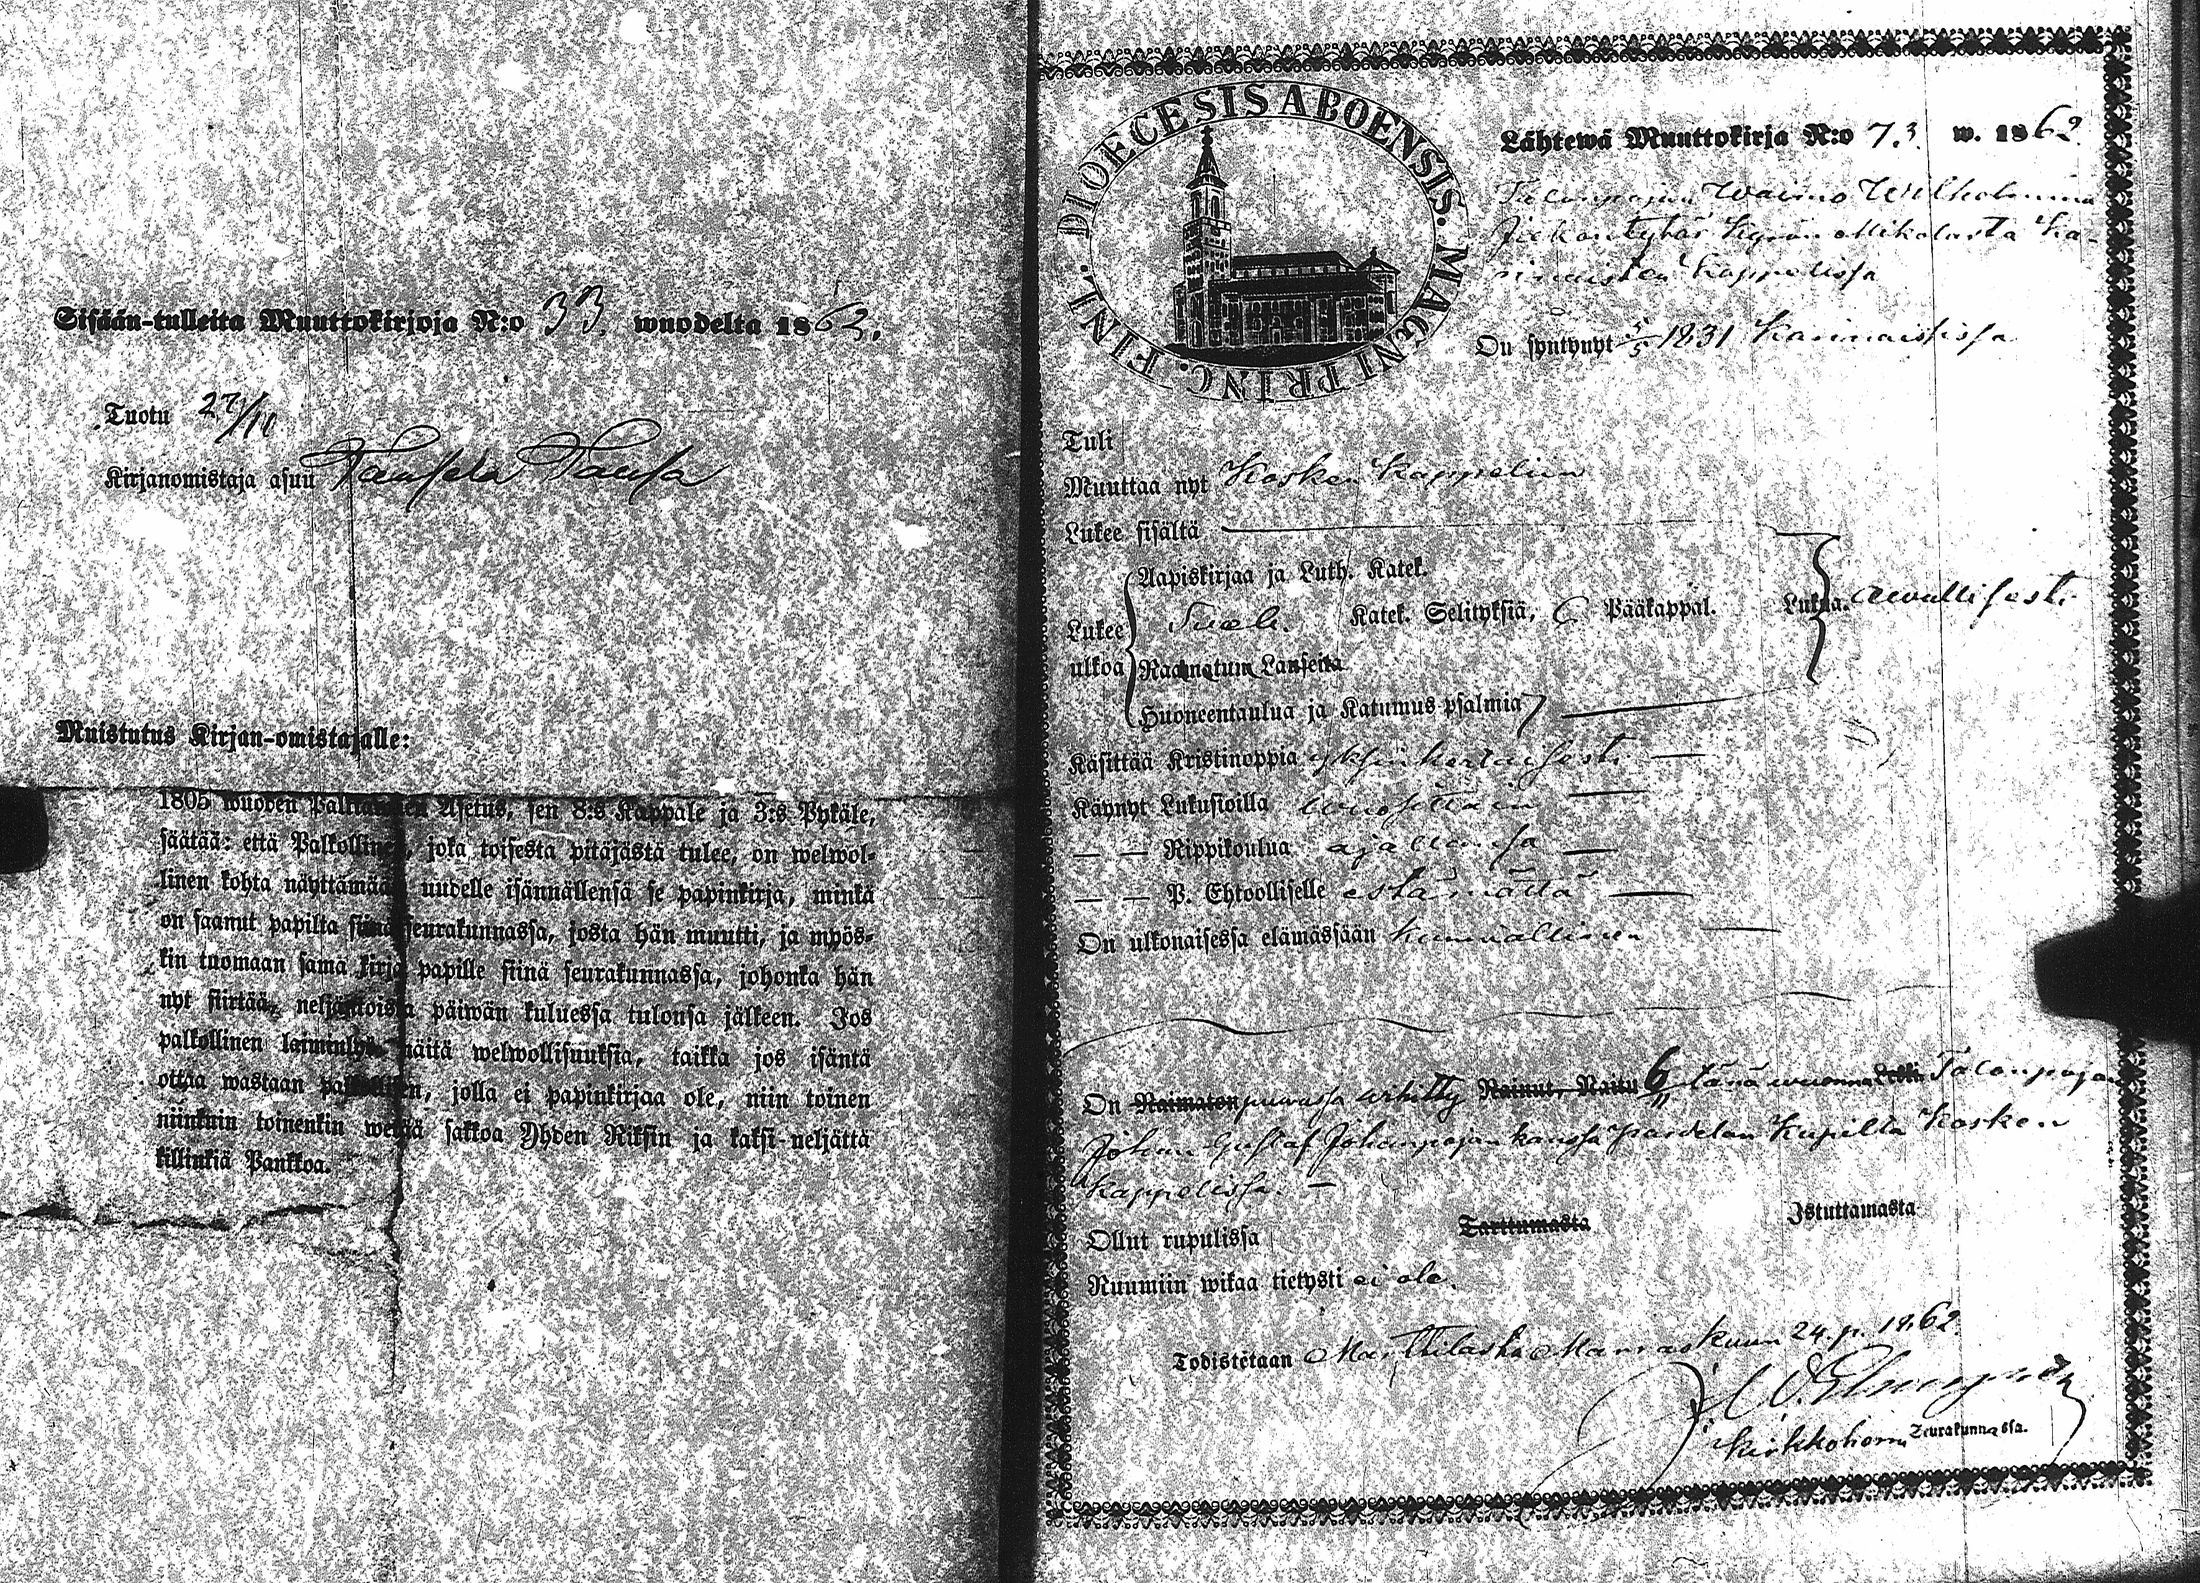 Sisään-tulleita Muuttokirjoja N:o 33 wuodelta 1862.
Tuotu 27/11
Kirjanomistaja asuu
Muistutus Kirjan-omistajalle:
1805 wuoden Palkollisten Asetus, sen 8:s Kappale ja 3:s Pykäle,
säätää: että Palkollinen, joka toisesta pitäjästä tulee, on welwol-
linen kohta näyttämään uudelle isännällensä se papinkirja, minkä
on saanut papilta siinä seurakunnassa, josta hän muutti, ja myös-
kin tuomaan samä kirja papille siinä seurakunnassa, johonka hän
nyt siirtää, neljäntoista päiwän kuluessa tulonsa jälkeen. Jos
palkollinen laiminlyö näitä welwollisuuksia, taikka jos isäntä
ottaa wastaan palkollisen, jolla ei papinkirjaa ole, niin toinen
niinkuin toinenkin wetää sakkoa Yhden Riksin ja kaksi neljättä
killinkiä Pankkoa.
DIOECESIS ABOENSIS. MAGNI PRINC. FINL.
Lähtewä Muuttokirja N:o 73 w. 1862.
Talonpojan Waimo Wilhelmina
Jaakontytär Kyrön Mikolasta Ka-
rinaisten Kappelissa
On syntynyt 5/5 1831 Karinaisissa
Tuli
Muuttaa nyt Kosken Kappeliin
Lukee sisältä
Aapiskirjaa ja Luth. Katek.
Lukee ulkoa Katek. Selityksiä, 6 Pääkappal. Lukua. awullisesti
Raamatun Lauseita
Huoneentaulua ja Katumus psalmia
Käsittää Kristinoppia yksinkertaisesti
Käynyt Lukusioilla wuosittain
— — Rippikoulua ajallansa
— — P. Ehtoolliselle estämättä
On ulkonaisessa elämässään kunniallinen
On Naimaton puwussa wihitty Nainut, Naitu 6/11 tänä wuonna Leski Talonpojan
Johan Gustaf Johanpojan kanssa Kupilla Kosken
Kappelissa. —
Ollut rupulissa Tarttumasta Istuttamasta
Ruumiin wikaa tietysti ei ole.
Todistetaan Marttilassa Marraskuun 24. p. 1862.
Kirkkoherra Seurakunnassa.